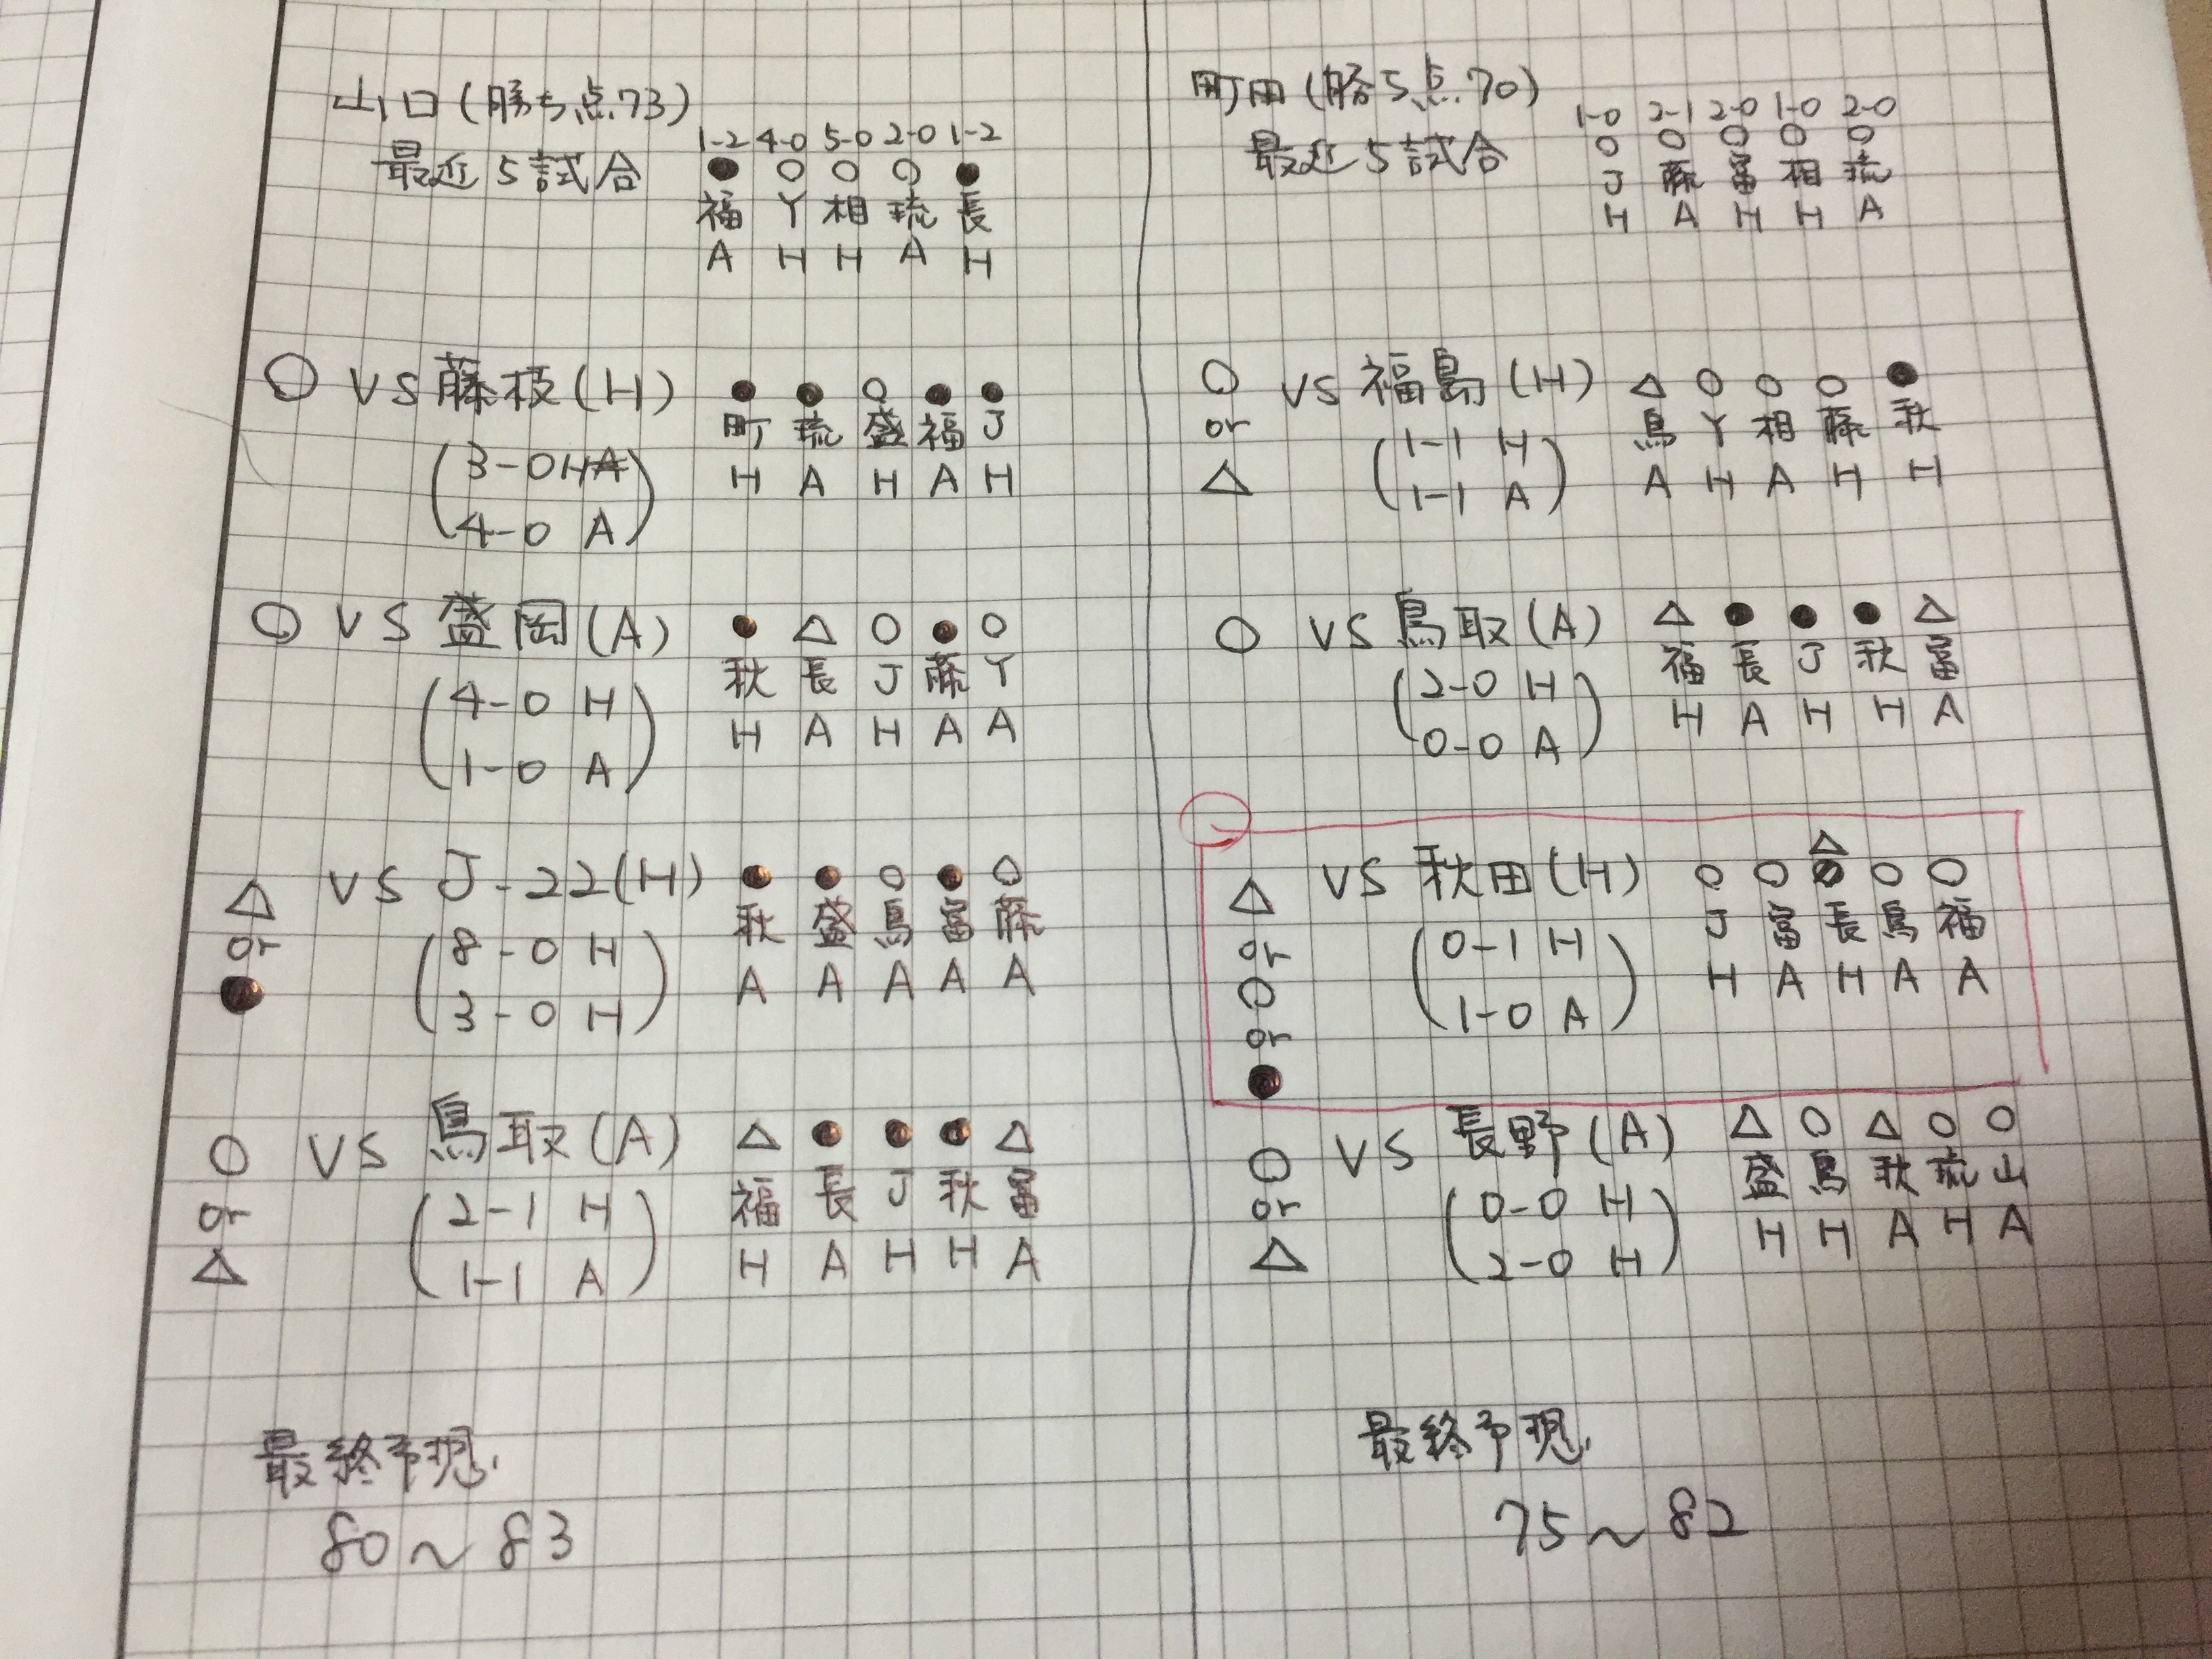 山口(勝ち点.73)
1-2 4-0 5-0 2-0 1-2
最近5試合 ● ○ ○ ○ ●
福 Y 相 琉 長
A H H A H
○ VS 藤枝(H) ● ● ○ ● ●
町 琉 盛 福 J
(3-0 H
4-0 A)
H A H A H
○ VS 盛岡(A) ● △ ○ ● ○
秋 長 J 藤 Y
(4-0 H
1-0 A)
H A H A A
△ or ● VS J-22(H) ● ● ○ ● ○
秋 盛 鳥 富 藤
(8-0 H
3-0 H)
A A A A A
○ or △ VS 鳥取(A) △ ● ● ● △
福 長 J 秋 富
(2-1 H
1-1 A)
H A H H A
最終予想.
80～83
町田(勝ち点.70)
1-0 2-1 2-0 1-0 2-0
最近5試合 ○ ○ ○ ○ ○
J 藤 富 相 琉
H A H H A
○ or △ VS 福島(H) △ ○ ○ ○ ●
鳥 Y 相 藤 秋
(1-1 H
1-1 A)
A H A H H
○ VS 鳥取(A) △ ● ● ● △
福 長 J 秋 富
(2-0 H
0-0 A)
H A H H A
△ or ○ or ● VS 秋田(H) ○ ○ △ ○ ○
J 富 長 鳥 福
(0-1 H
1-0 A)
H A H A A
○ or △ VS 長野(A) △ ○ △ ○ ○
盛 鳥 秋 琉 山
(0-0 H
2-0 H)
H H A H A
最終予想.
75～82